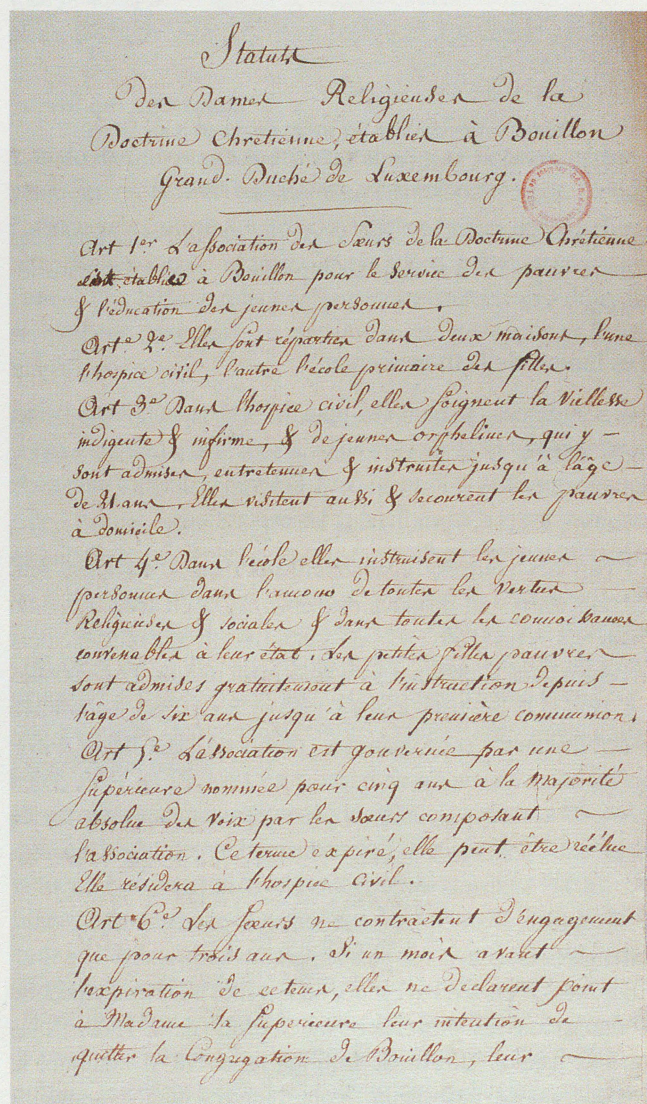 Statuts
des Dames Religieuses de la
Doctrine Chretienne, établies à Bouillon
Grand-Duché de Luxembourg.
Art 1er L'association des Sœurs de la Doctrine Chrétienne
est établie à Bouillon pour le service des pauvres
& l'éducation des jeunes personnes.
Art.e 2e. Elles sont réparties dans deux maisons, l'une
l'hospice civil, l'autre l'école primaire des filles.
Art 3e Dans l'hospice civil, elles soignent la viellesse
indigente & infirme, & de jeunes orphelines, qui y —
sont admises, entretenues & instruites jusqu'à l'âge —
de 21 ans. Elles visitent aussi & secourent les pauvres
à domicile.
Art 4e. Dans l'école elles instruisent les jeunes —
personnes dans l'amour de toutes les vertus —
Religieuses & sociales & dans toutes les connoissances
convenables à leur état. Les petites filles pauvres
sont admises gratuitement à l'instruction depuis —
l'âge de six ans jusqu'à leur première communion.
Art 5e. L'association est gouvernée par une —
supérieure nommée pour cinq ans à la majorité
absolue des voix par les sœurs composant —
l'association. Ce terme expiré, elle peut être réélue
Elle résidera à l'hospice civil.
Art 6e. Les sœurs ne contractent d'engagement
que pour trois ans. Si un mois avant —
l'expiration de ce tems, elles ne declarent point
à Madame la superieure leur intention de —
quitter la Congregation de Bouillon, leur —